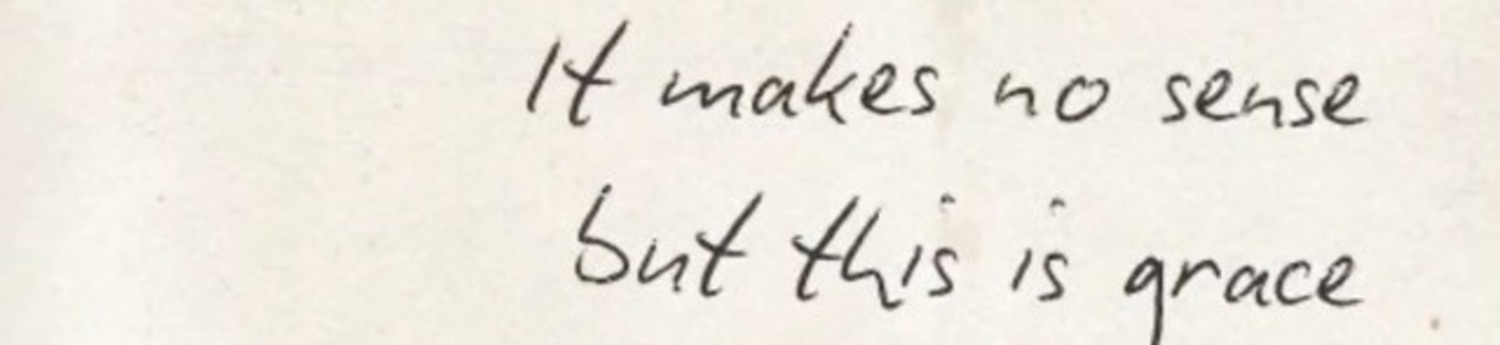 It makes no sense
but this is grace